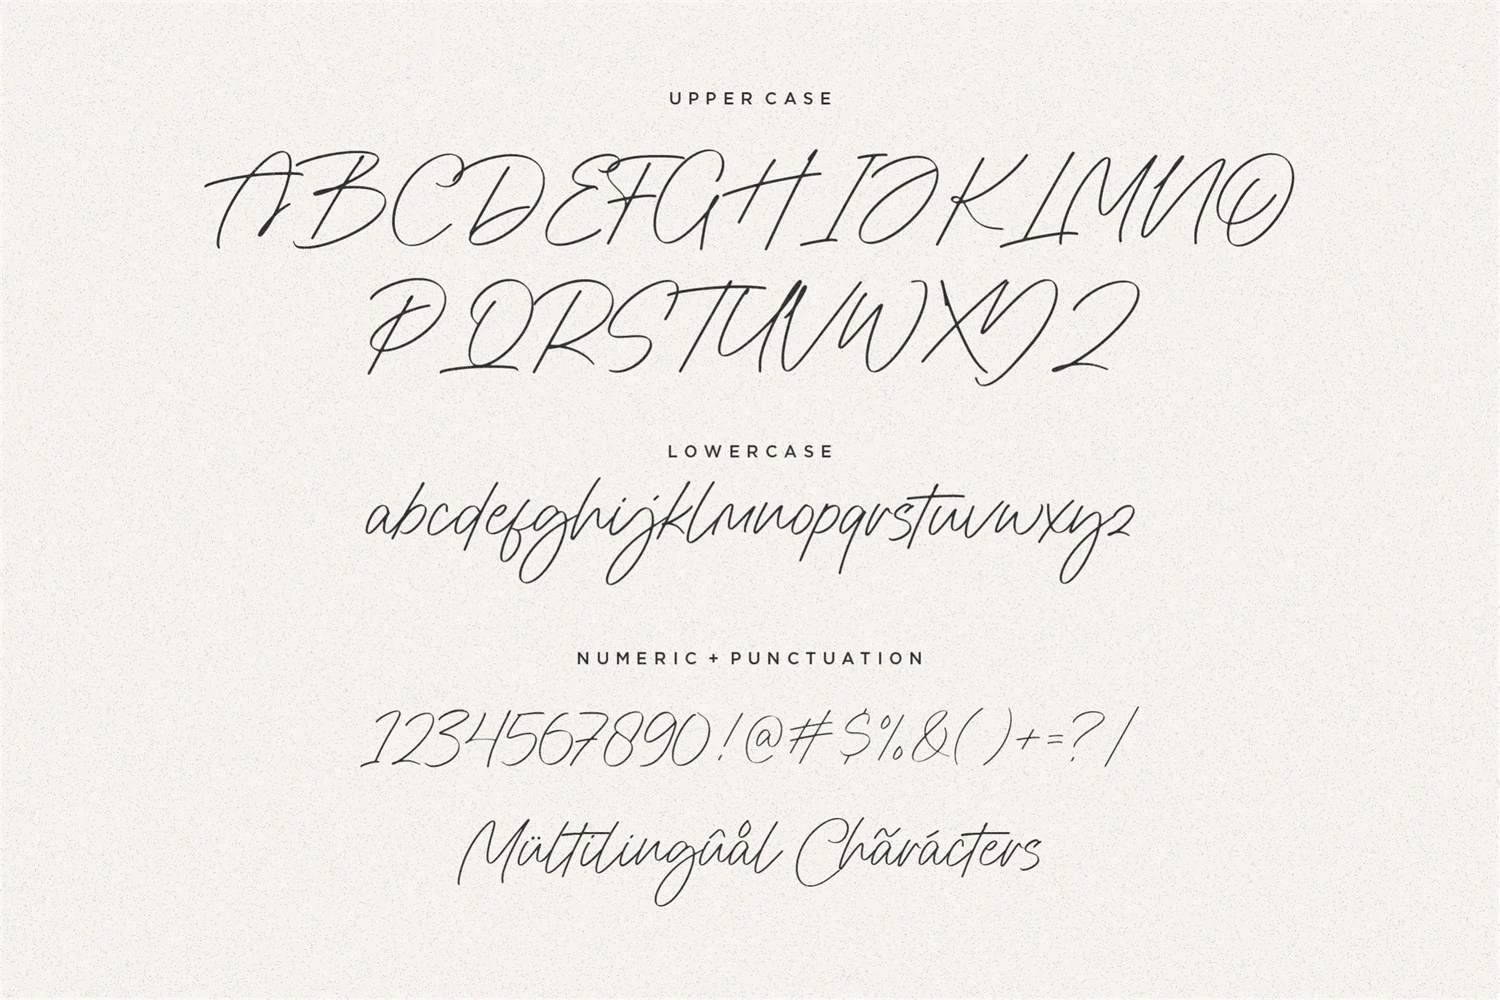 UPPER CASE
ABCDEFGHIJKLMNO
PQRSTUVWXYZ
LOWERCASE
abcdefghijklmnopqrstuvwxyz
NUMERIC + PUNCTUATION
1234567890!@#$%&()+=?/
Mültilingûål Chãrácters